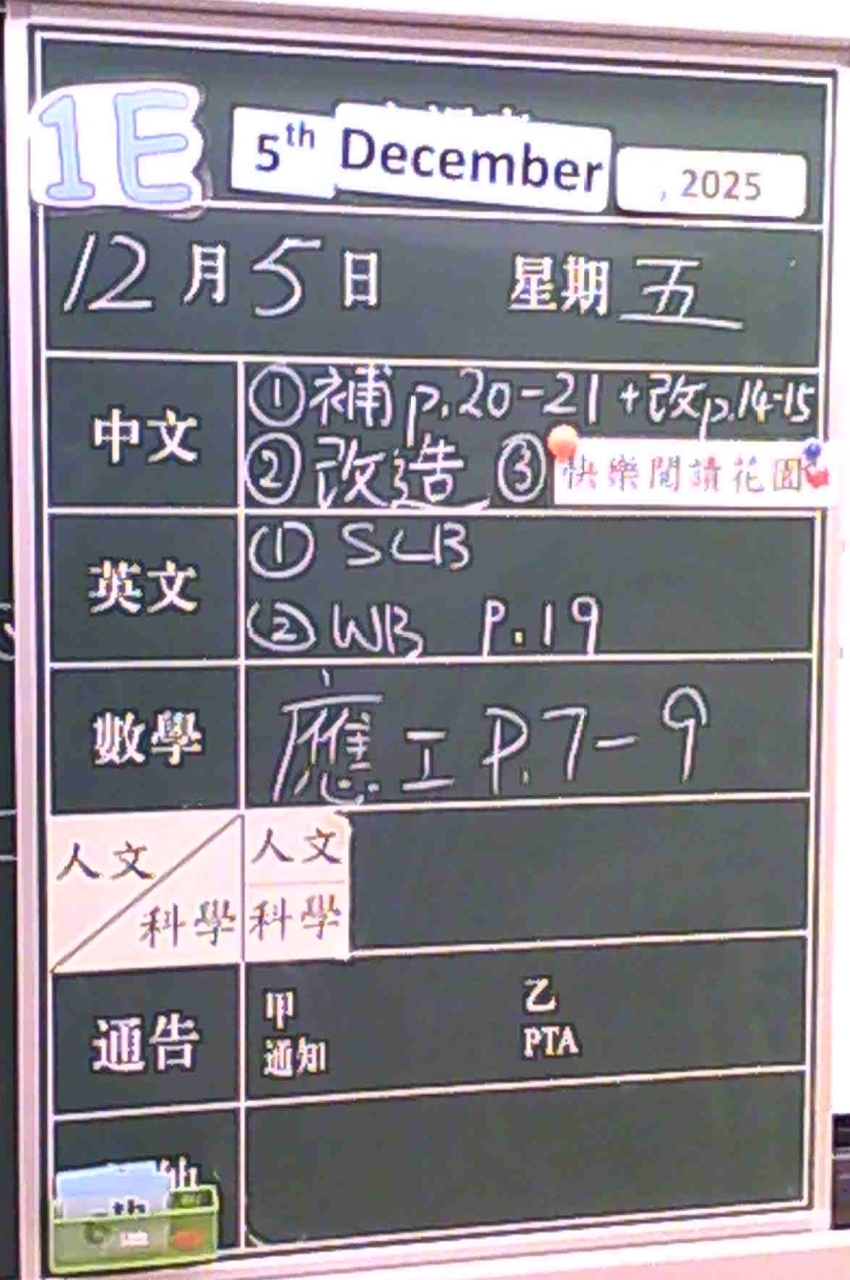 1E 5th December , 2025
12月5日 星期五
中文 ①補p.20-21+改p.14-15
②改造 ③快樂閱讀花園
英文 ① SCB
② WB P.19
數學 應工P.7-9
人文 人文
科學 科學
通告 甲 乙
通知 PTA